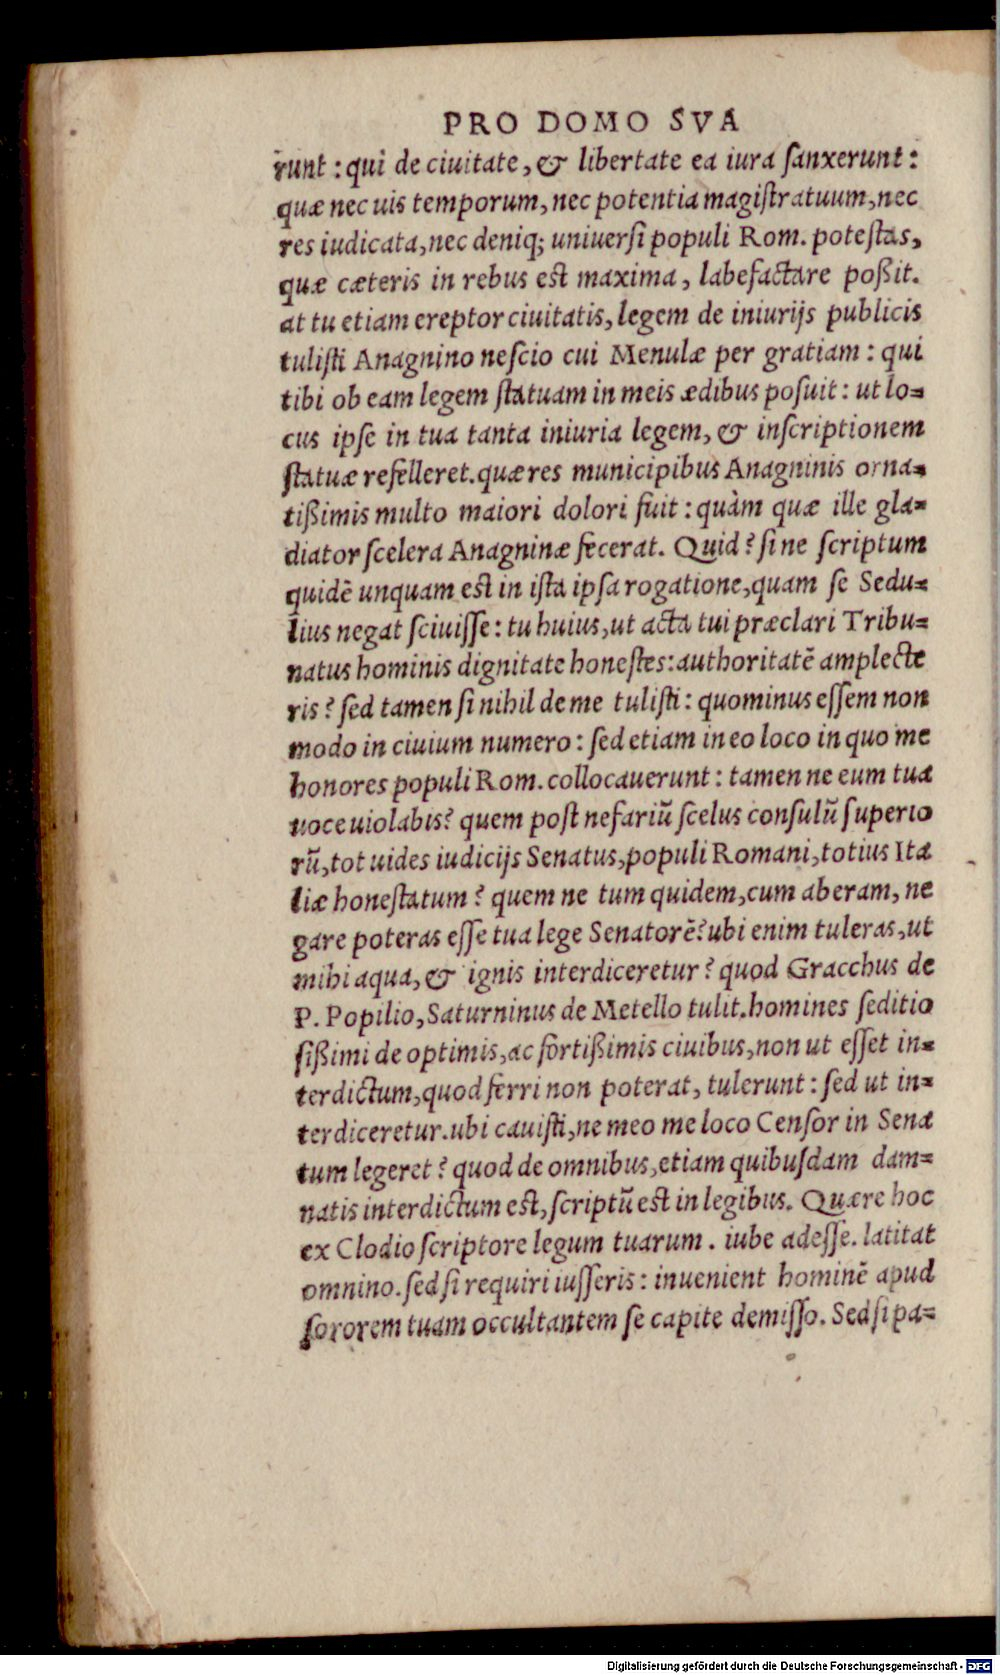 PRO DOMO SVA
runt : qui de ciuitate, & libertate ea iura ſanxerunt :
quæ nec uis temporum, nec potentia magiſtratuum, nec
res iudicata, nec deniq; uniuerſi populi Rom. poteſtas,
quæ cæteris in rebus eſt maxima, labefactare poßit.
at tu etiam ereptor ciuitatis, legem de iniurijs publicis
tuliſti Anagnino neſcio cui Menulæ per gratiam : qui
tibi ob eam legem ſtatuam in meis ædibus poſuit : ut lo=
cus ipſe in tua tanta iniuria legem, & inſcriptionem
ſtatuæ refelleret. quæ res municipibus Anagninis orna=
tißimis multo maiori dolori fuit : quàm quæ ille gla=
diator ſcelera Anagninæ fecerat. Quid ? ſi ne ſcriptum
quidẽ unquam eſt in iſta ipſa rogatione, quam ſe Sedu=
lius negat ſciuiſſe : tu huius, ut acta tui præclari Tribu=
natus hominis dignitate honeſtes : authoritatẽ amplecte
ris ? ſed tamen ſi nihil de me tuliſti : quominus eſſem non
modo in ciuium numero : ſed etiam in eo loco in quo me
honores populi Rom. collocauerunt : tamen ne eum tua
uoce uiolabis ? quem poſt nefariũ ſcelus conſulũ ſuperio
rũ, tot uides iudicijs Senatus, populi Romani, totius Ita
liæ honeſtatum ? quem ne tum quidem, cum aberam, ne
gare poteras eſſe tua lege Senatorẽ ? ubi enim tuleras, ut
mihi aqua, & ignis interdiceretur ? quod Gracchus de
P. Popilio, Saturninus de Metello tulit. homines ſeditio
ſißimi de optimis, ac fortißimis ciuibus, non ut eſſet in=
terdictum, quod ferri non poterat, tulerunt : ſed ut in=
terdiceretur. ubi cauiſti, ne meo me loco Cenſor in Sena
tum legeret ? quod de omnibus, etiam quibuſdam dam=
natis interdictum eſt, ſcriptũ eſt in legibus. Quære hoc
ex Clodio ſcriptore legum tuarum . iube adeſſe. latitat
omnino. ſed ſi requiri iuſſeris : inuenient hominẽ apud
ſororem tuam occultantem ſe capite demiſſo. Sed ſi pa=
Digitalisierung gefördert durch die Deutsche Forschungsgemeinschaft - DFG